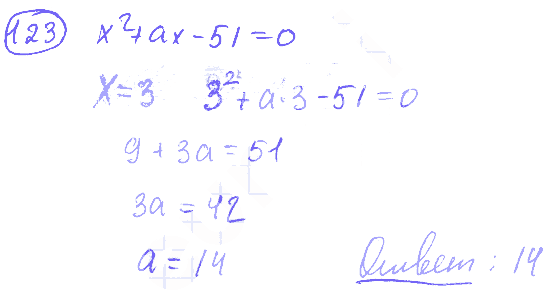 123 x²+ax-51=0
x=3 3²+a·3-51=0
9+3a=51
3a=42
a=14
Ответ: 14